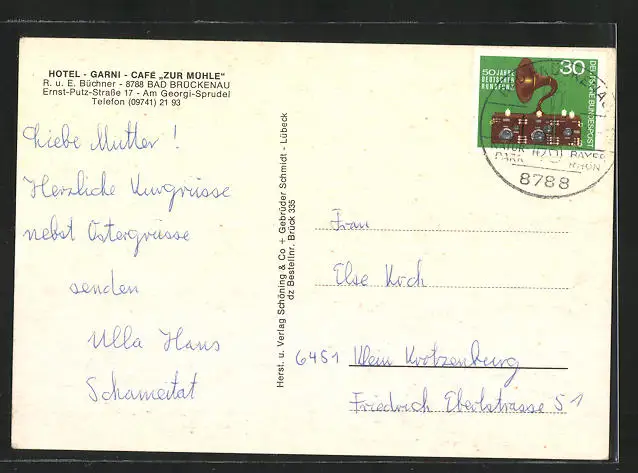 HOTEL - GARNI - CAFÉ „ZUR MÜHLE"
R. u. E. Büchner - 8788 BAD BRÜCKENAU
Ernst-Putz-Straße 17 - Am Georgi-Sprudel
Telefon (09741) 21 93
Liebe Mutter!
Herzliche Kurgrüsse
nebst Ostergrüsse
senden
Ulla Hans
Schameitat
Herst. u. Verlag Schöning & Co + Gebrüder Schmidt - Lübeck
dz Bestellnr. Brück 335
50 JAHRE
DEUTSCHER
RUNDFUNK
30
DEUTSCHE BUNDESPOST
NATUR
PARK
BAYER
RHÖN
8788
Frau
Else Koch
6451 Klein Krotzenburg
Friedrich Ebertstrasse 51